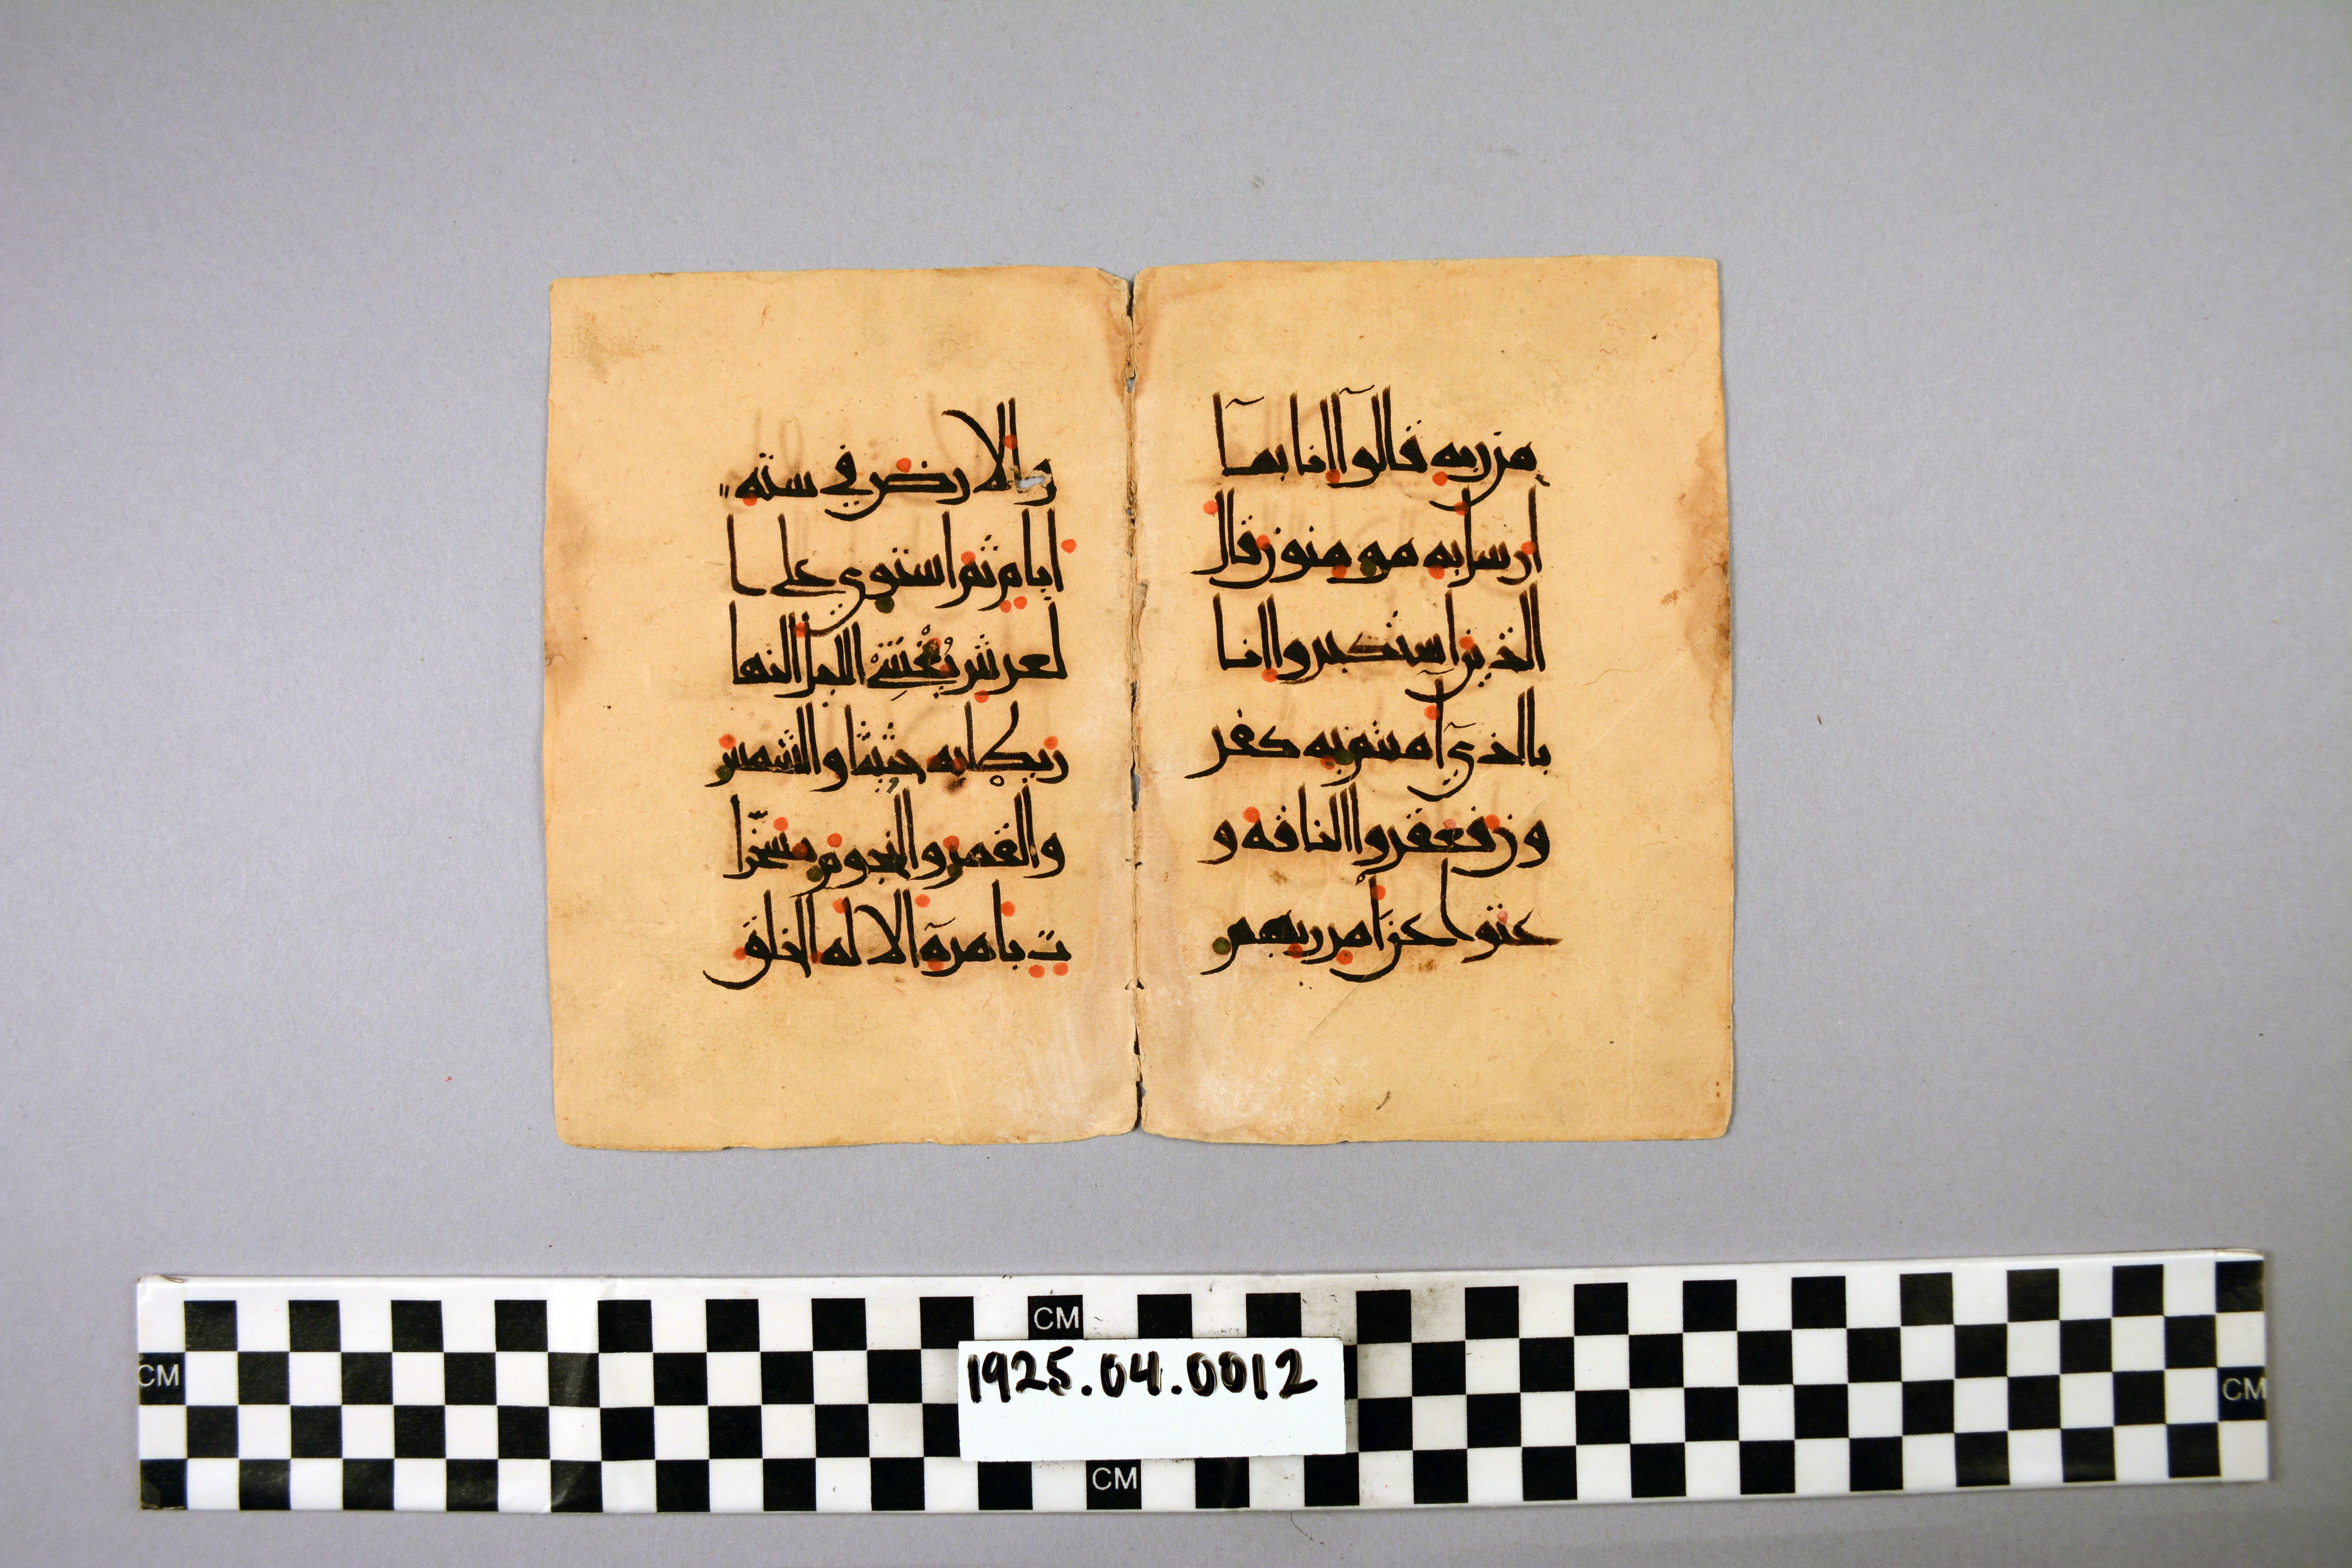 من ربه قالوا انا بما
ارسل به مومنون قال
الذين استكبروا انا
بالذي امنتم به كفر
ون فعقروا الناقة و
عتوا عن امر ربهم
والارض في ستة
ايام ثم استوي علي ا
لعرش يُغْشِي اليل النها
ر يطلبه حثيثا والشمس
والقمر والنجوم مسخّرا
ت بامره الا له الخلق
CM
CM
1925.04.0012
CM
CM